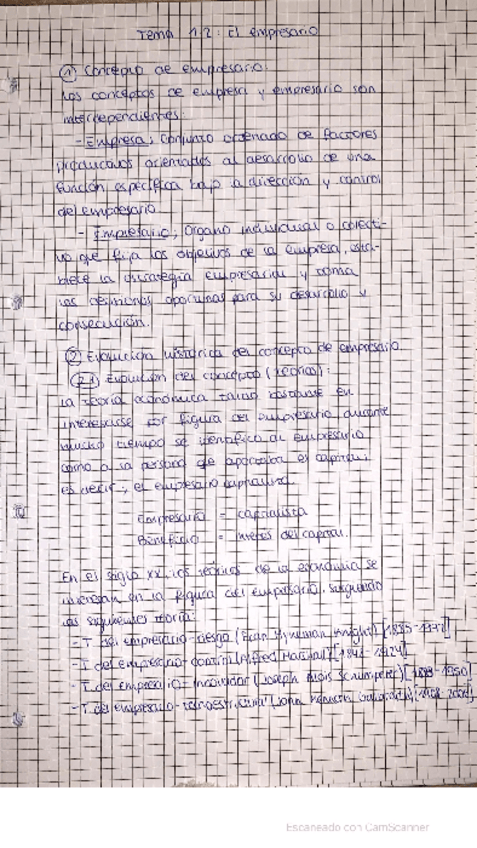 Tema 1/2: El empresario
① Concepto de empresario:
Los conceptos de empresa y empresario son
interdependientes:
- Empresa; Conjunto ordenado de factores
productivos orientados al desarrollo de una
función específica bajo a dirección y control
del empresario.
- Empresario; Organo individual o colecti-
vo que fija los objetivos de la empresa, esta-
blece la estrategia empresarial y toma
las decisiones oportunas para su desarrollo y
consecución.
② Evolución histórica del concepto de empresario
2.1 Evolución del concepto (teórico):
La teoría económica tardó bastante en
interesarse por figura del empresario, durante
mucho tiempo se identifica al empresario
como a la persona que aportaba el capital;
es decir; el empresario capitalista.
Empresario = capitalista
Beneficio = interés del capital.
En el siglo XX, los teóricos de la economía se
interesan en la figura del empresario, surgiendo
las siguientes teorías:
- T. del empresario-riesgo (Frank Hyneman Knight) [1885-]
- T. del empresario- (Alfred Marshall) [1842-1924]
- T. del empresario-innovador (Joseph Alois Schumpeter) [1883-1950]
- T. del empresario-tecnoestructura (John Kenneth Galbraith) [1908-]
Escaneado con CamScanner